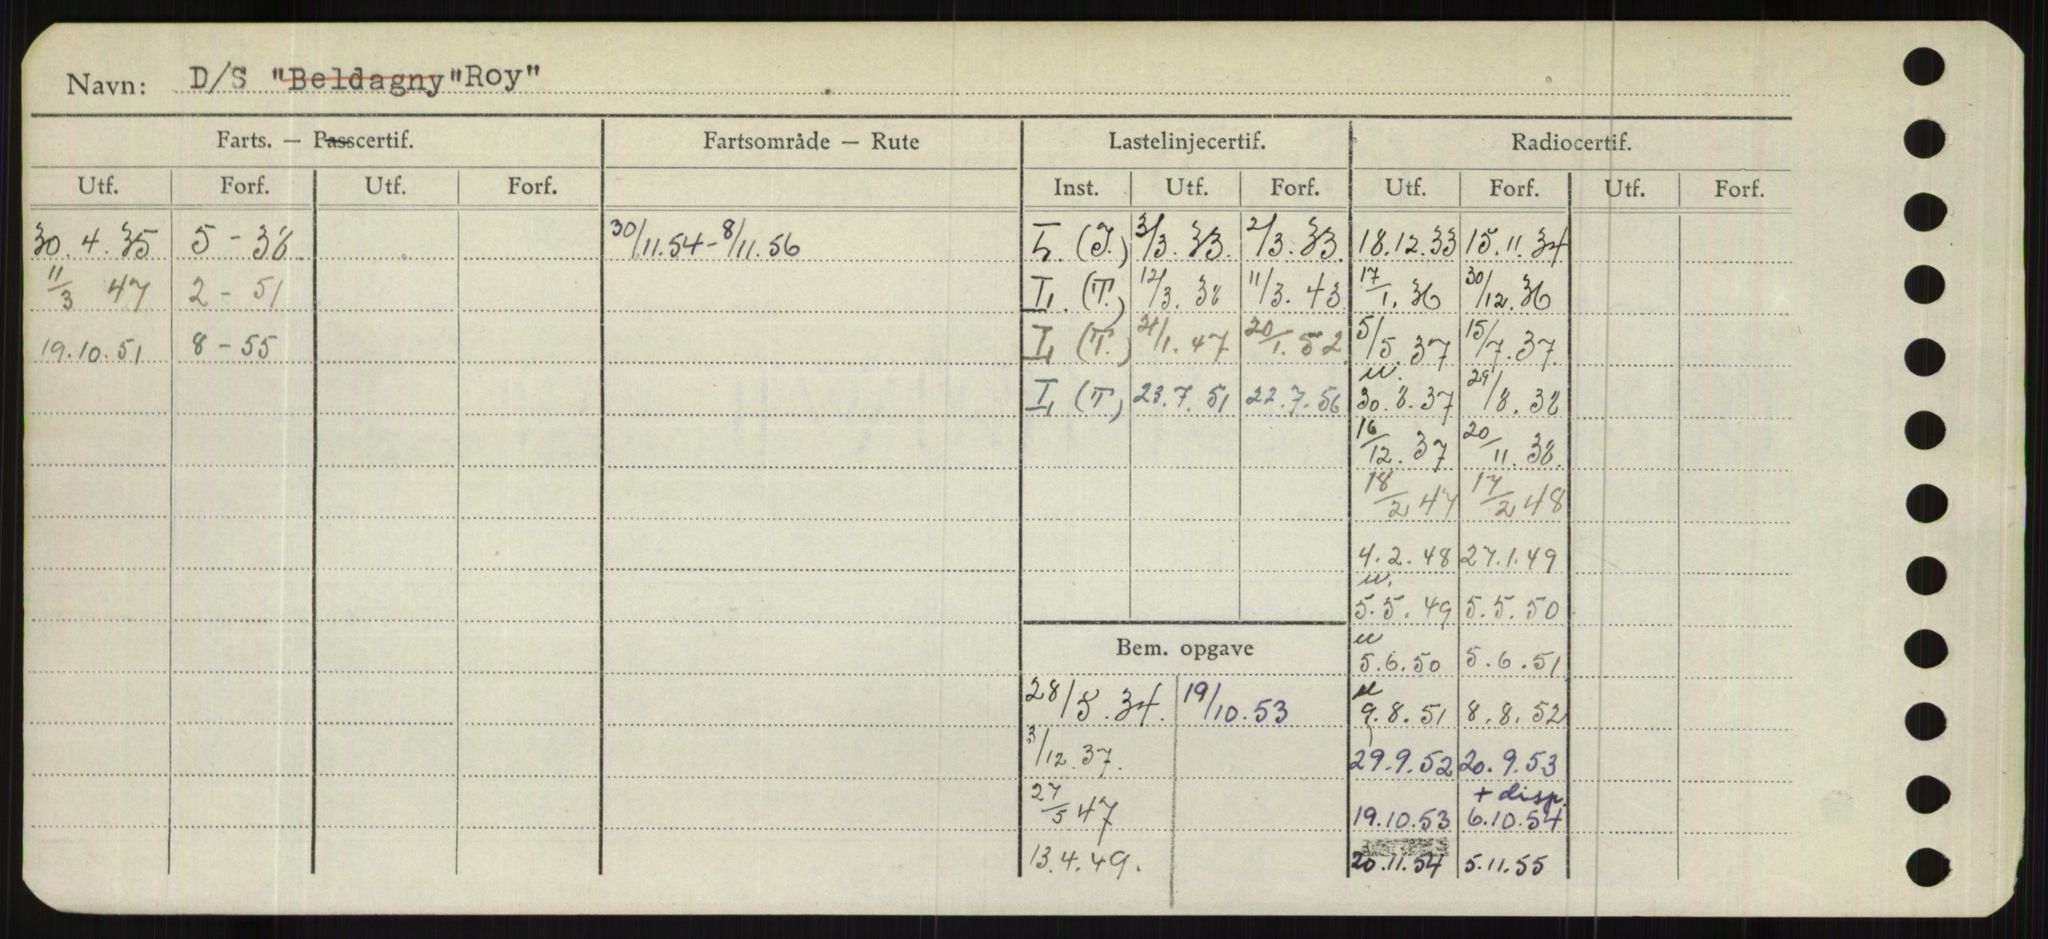 Navn: D/S "Beldagny" Roy"
Farts. — Passcertif. Fartsområde — Rute Lastelinjecertif. Radiocertif.
Utf. Forf. Utf. Forf. Inst. Utf. Forf. Utf. Forf. Utf. Forf.
30.4.35 5-38 30/11.54-8/11.56 3/3.33. 2/3.33. 18.12.33 15.11.34
11/3 47 2-51 (T.) 12/3.38 11/3.43 17/1.36 30/12.36
19.10.51 8-55 (T.) 21/1.47 20/1.52 5/5.37 15/7.37
(T) 23.7.51 22.7.56 u. 30.8.37 29/8.38
16/12.37 20/11.38.
18/2 47 17/2 48
4.2.48 27.1.49
u. 5.5.49 5.5.50
Bem. opgave u 5.6.50 5.6.51
28/5.34. 19/10.53 u 9.8.51 8.8.52
3/12.37. 29.9.52 20.9.53
27/5 47 19.10.53 + disp. 6.10.54
13.4.49. 20.11.54 5.11.55